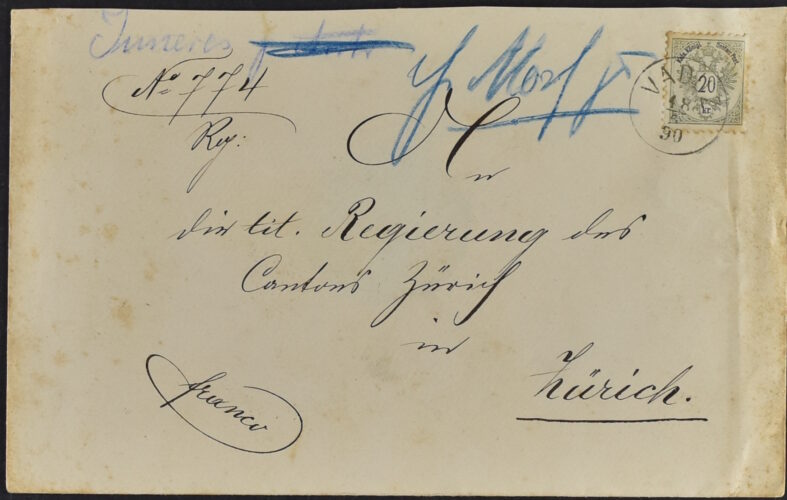 Inneres
No 774
Reg:
An
die tit. Regierung des
Cantons Zürich
in
Zürich.
franco
VAD
20
18
90